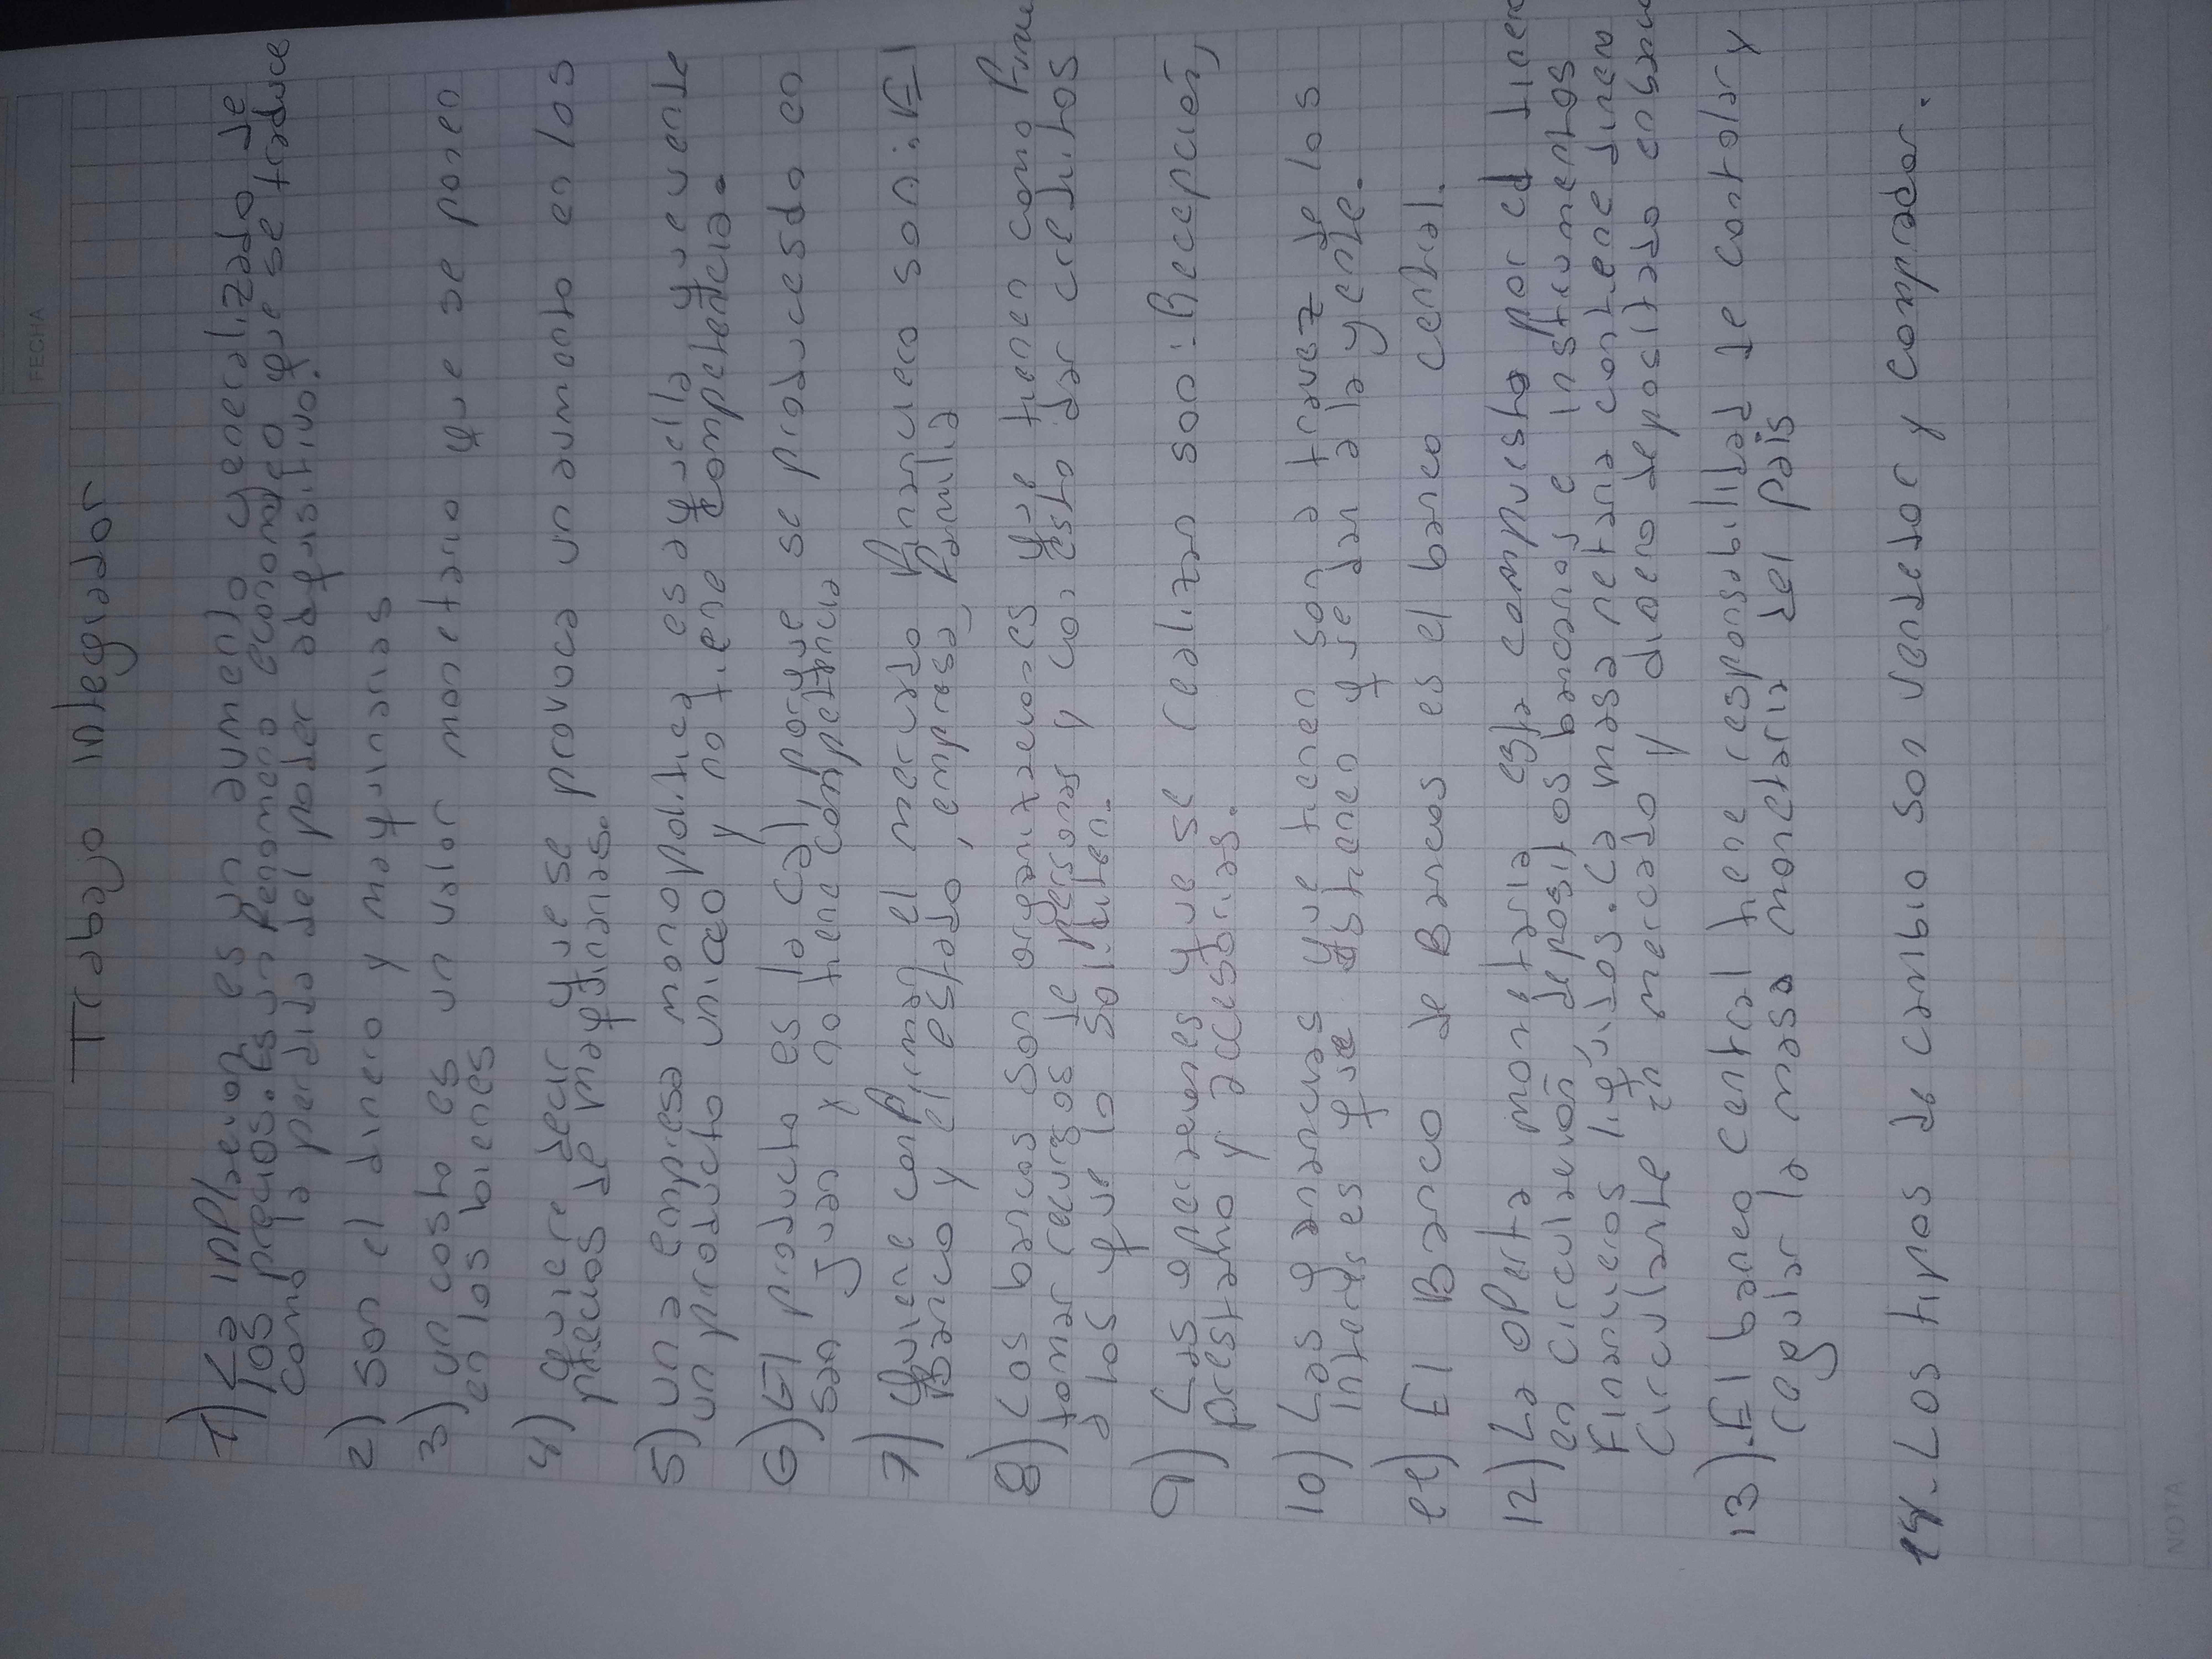 FECHA
Trabajo integrador
1) La inflacion es un aumento generalizado de
los precios. Es un fenomeno economico que se traduce
como la perdida del poder adquisitivo.
2) Son el dinero y mayquinarias
3) un costo es un valor monetario que se ponen
en los bienes
4) quiere decir que se provoca un aumento en los
precios de mayquicanas.
5) una empresa monopolitica es aquella que vende
un producto unico y no tiene competencia.
6) El producto es la cal porque se producesdo en
San Juan y no tiene competencia
7) Quiene conforman el mercado financieco son: El
Banco y el estado, empresa, familia
8) Los bancos son organizaciones que tienen como fina
tomar recursos de personas y con esto dar creditos
a los que lo soliciten.
9) Las operaciones que se realizan son: Recepción,
prestamo y accesorias.
10) Las ganancias que tienen son a travez de los
interes es que obtienen que le dan a la gente.
11) El Banco de Bancos es el banco central.
12) La oferta monetaria esta compuesta por el diner
en circulación, depositos bancarios e instrumentos
Financieros liquidos. La masa netaria contiene dinero
Circulante en mercado y dinero depositado en banc
13) El banco central tiene responsabilidad de controlar y
regular la masa monetaria del país
14.- Los tipos de cambio son vendedor y comprador.
NOTA